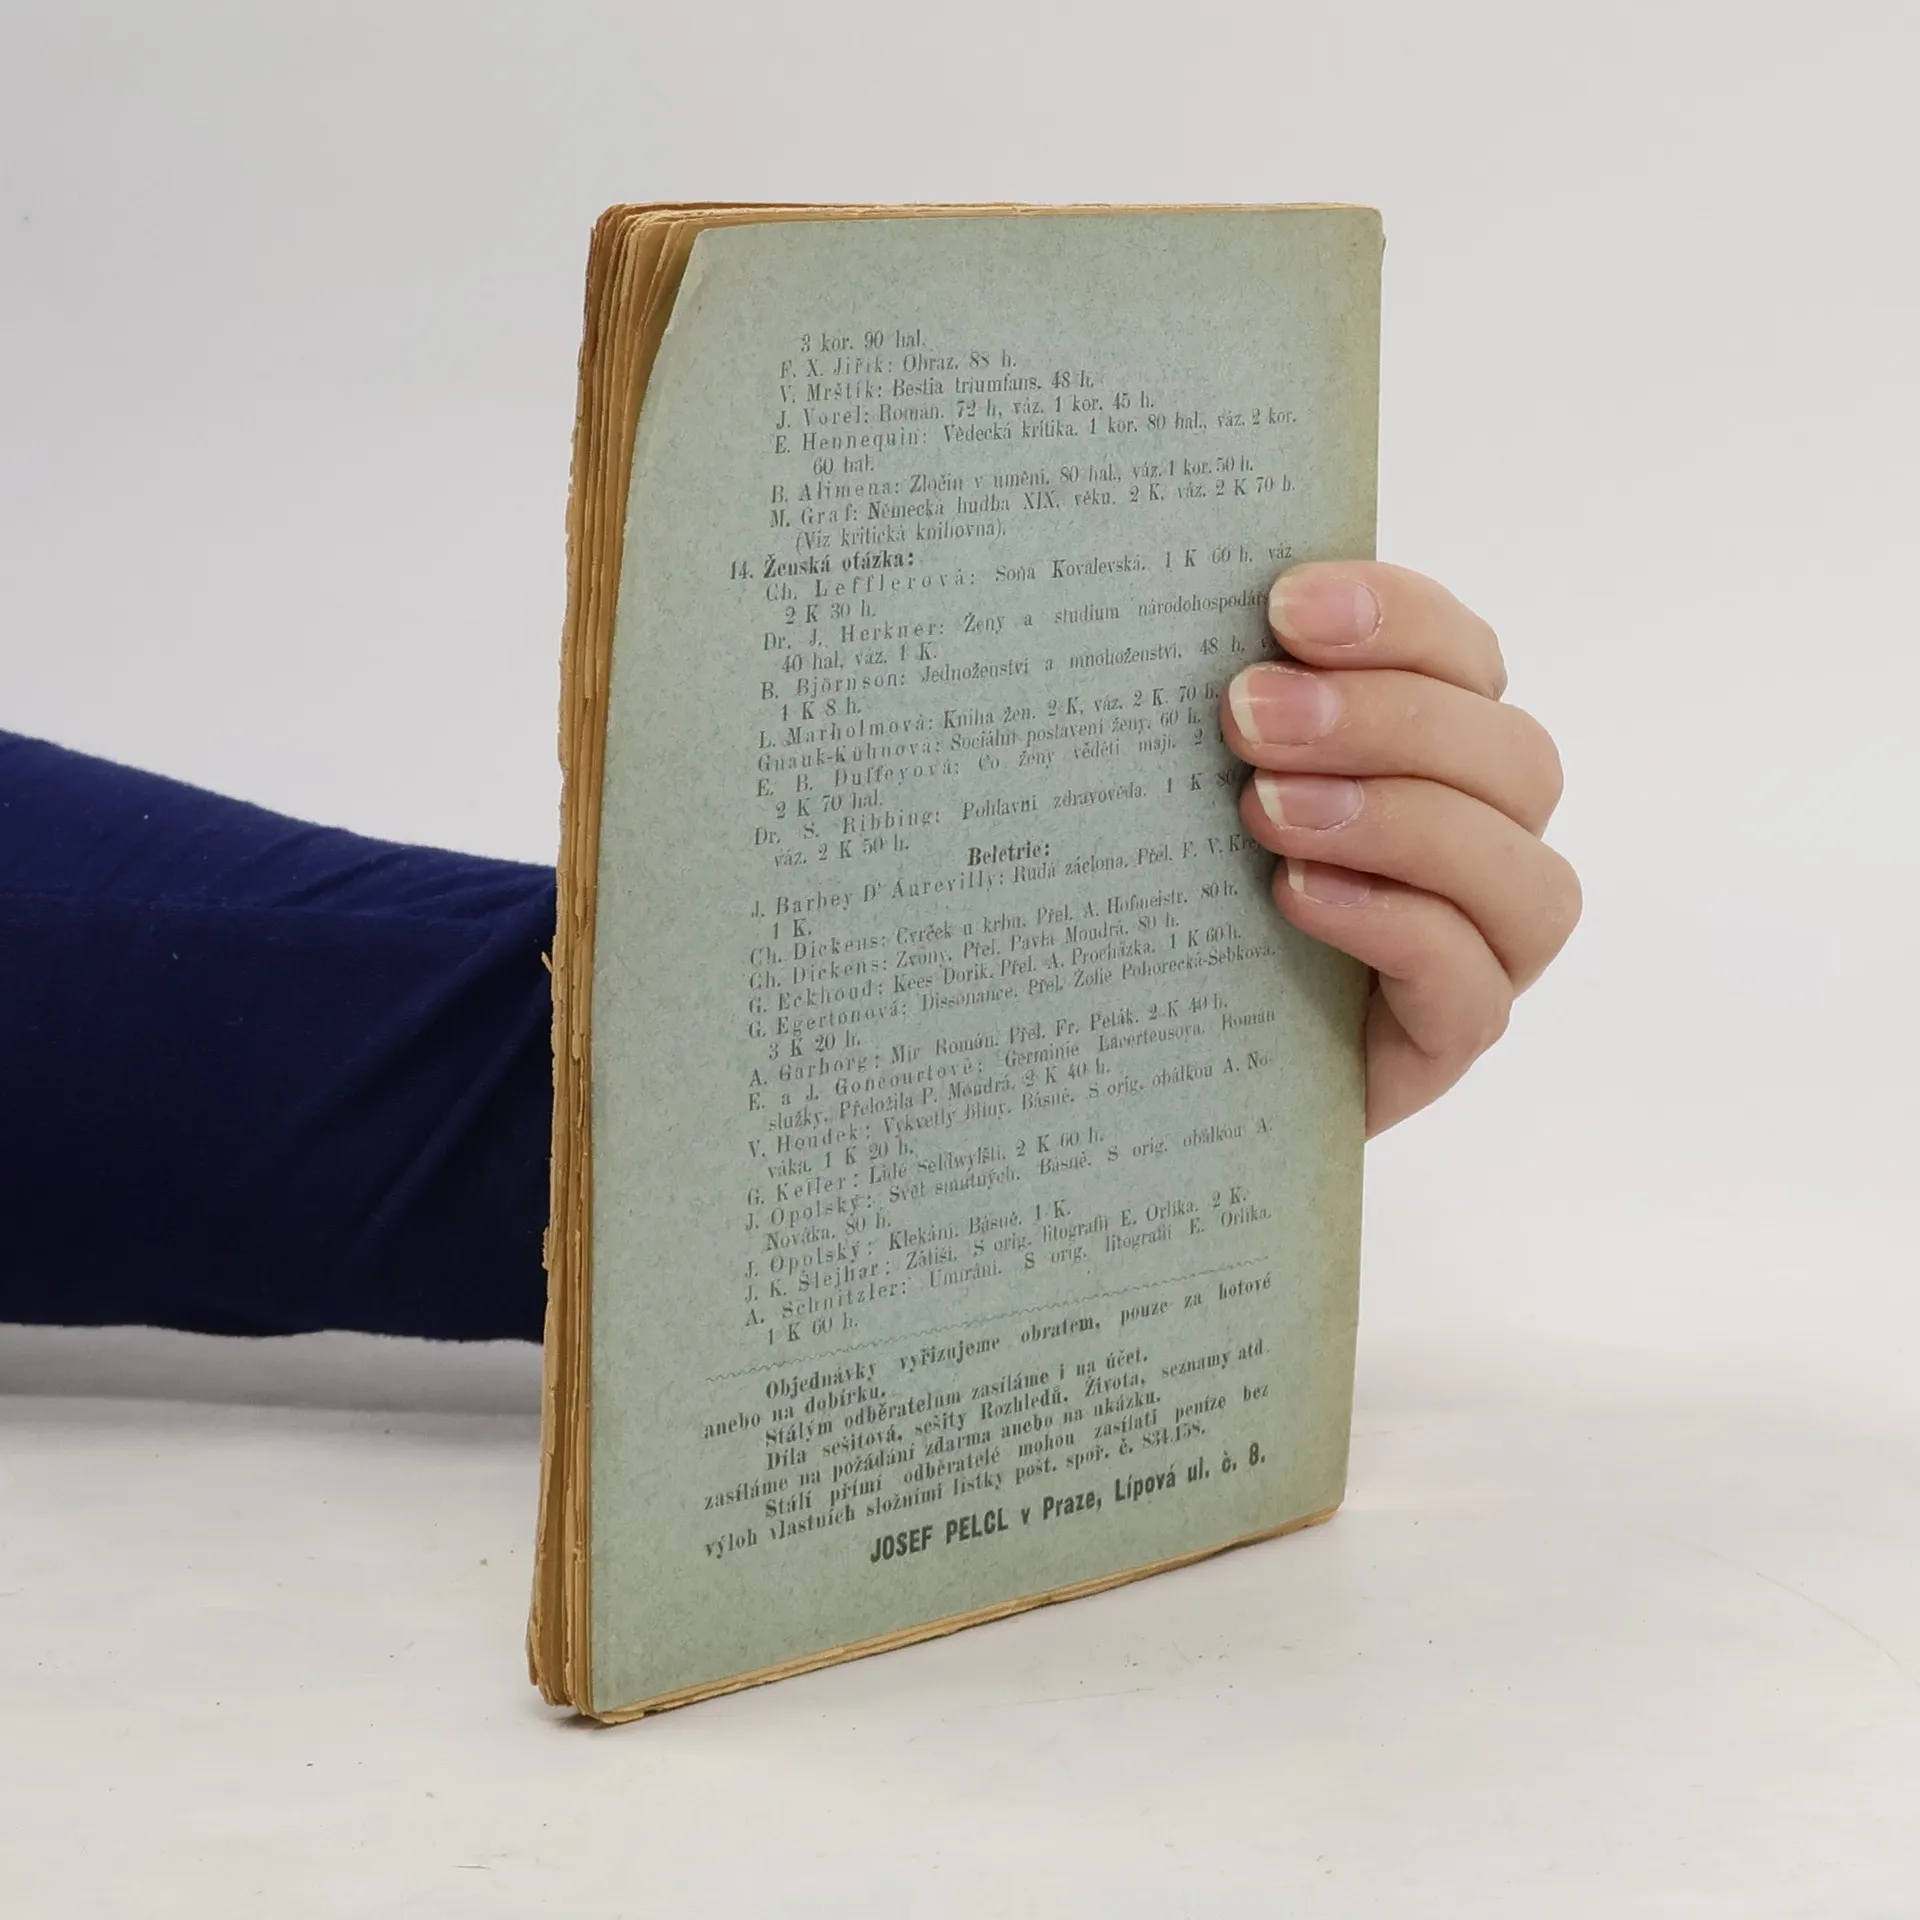 3 kor. 90 hal.
F. X. Jiřík: Obraz. 88 h.
V. Mrštík: Bestia triumfans. 48 h.
J. Vorel: Román. 72 h, váz. 1 kor. 45 h.
E. Hennequin: Vědecká kritika. 1 kor. 80 hal., váz. 2 kor.
60 hal.
B. Alimena: Zločin v umění. 80 hal., váz. 1 kor. 50 h.
M. Graf: Německá hudba XIX. věku. 2 K, váz. 2 K 70 h.
(Viz kritická knihovna).
14. Ženská otázka:
Ch. Lefflerová: Soňa Kovalevská. 1 K 60 h, váz
2 K 30 h.
Dr. J. Herkner: Ženy a studium národohospodářs
40 hal, váz. 1 K.
B. Björnson: Jednoženství a mnohoženství. 48 h,
1 K 8 h.
L. Marholmová: Kniha žen. 2 K, váz. 2 K. 70 h.
Gnauk-Kühnová: Sociální postavení ženy. 60 h.
E. B. Duffeyová: Co ženy věděti mají. 2
2 K 70 hal.
Dr. S. Ribbing: Pohlavní zdravověda. 1 K 80
váz. 2 K 50 h.
Beletrie:
J. Barbey D' Aurevilly: Rudá záclona. Přel. F. V. Krej
1 K.
Ch. Dickens: Cvrček u krbu. Přel. A. Hofmeistr. 80 h.
Ch. Dickens: Zvony. Přel. Pavla Moudrá. 80 h.
G. Eckhoud: Kees Dorik. Přel. A. Procházka. 1 K 60 h.
G. Egertonová: Dissonance. Přel. Žofie Pohorecká-Šebková.
3 K 20 h.
A. Garborg: Mír Román. Přel. Fr. Pelák. 2 K 40 h.
E. a J. Goncourtové: Germinie Lacerteusova. Román
služky. Přeložila P. Moudrá. 2 K 40 h.
V. Houdek: Vykvetly blíny. Básně. S orig. obálkou A. No-
váka. 1 K 20 h.
G. Keller: Lidé Seldwylští. 2 K 60 h.
J. Opolský: Svět smutných. Básně. S orig. obálkou A.
Nováka. 80 h.
J. Opolský: Klekání. Básně. 1 K.
J. K. Šlejhar: Zátiší. S orig. litografií E. Orlíka. 2 K.
A. Schnitzler: Umírání. S orig. litografií E. Orlíka.
1 K 60 h.
Objednávky vyřizujeme obratem, pouze za hotové
anebo na dobírku.
Stálým odběratelům zasíláme i na účet.
Díla sešitová, sešity Rozhledů, Života, seznamy atd.
zasíláme na požádání zdarma anebo na ukázku.
Stálí přímí odběratelé mohou zasílati peníze bez
výloh vlastních složními lístky pošt. spoř. č. 834.158.
JOSEF PELCL v Praze, Lípová ul. č. 8.